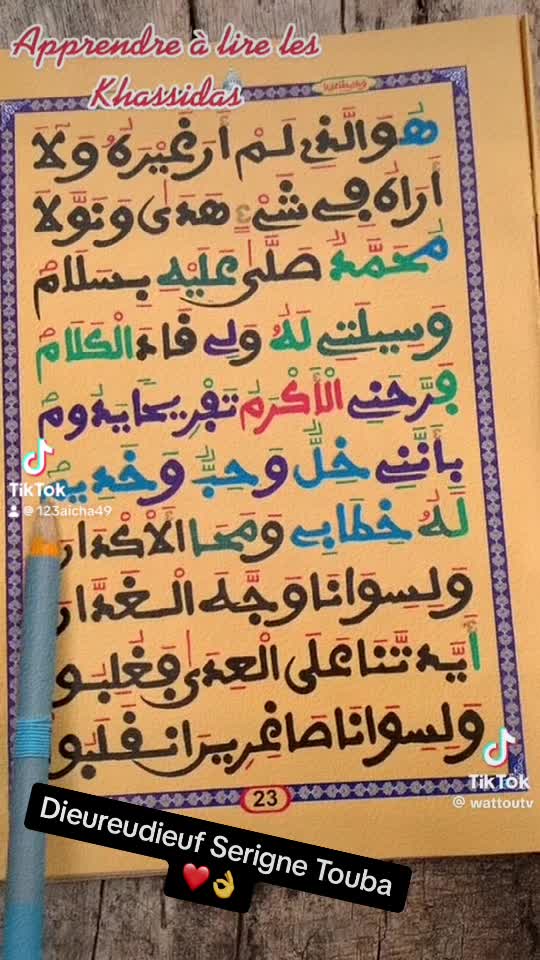 Apprendre à lire les
Khassidas
هُوَ الَّذِي لَمْ أَرَ غَيْرَهُ وَلَا
أَرَاهُ فِي شَيْءٍ هَدَى وَنَوَّلَا
مُحَمَّدٌ صَلَّى عَلَيْهِ بِسَلَامْ
وَسِيلَتِي لَهُ وَلِي قَادَ الْكَلَامْ
فَرَّحَنِي الْأَكْرَمُ تَفْرِيحًا يَدُومْ
بِأَنَّنِي خِلٌّ وَحِبٌّ وَخَدِيمْ
لَهُ خِطَابِي وَمَحَا الْأَكْدَارَ
وَلِسِوَانَا وَجَّهَ الْغَدَّارَ
أَيَّدَنَا عَلَى الْعِدَى فَغُلِبُوا
وَلِسِوَانَا صَاغِرِينَ انْقَلَبُوا
23
TikTok
@123aicha49
TikTok
@wattoutv
Dieureudieuf Serigne Touba
❤️👌